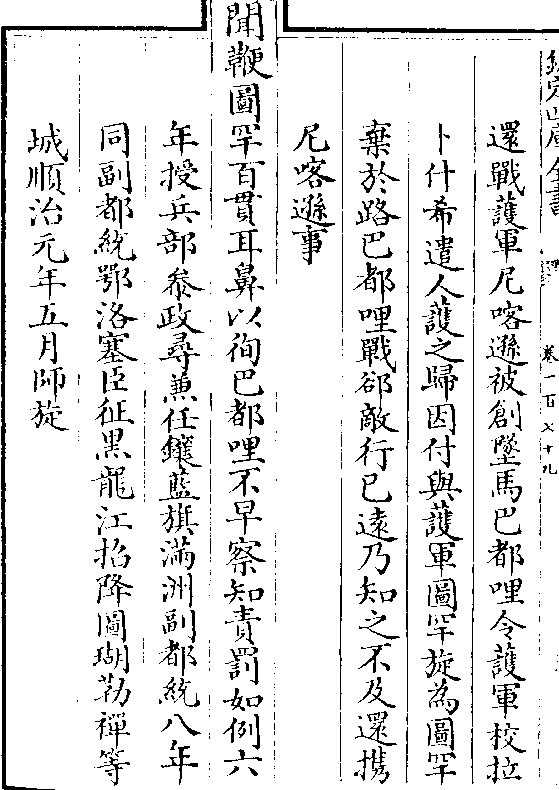 欽定四庫全書
卷一百七十九
還戰護軍尼喀遜被創墜馬巴都哩令護軍校拉
卜什希遣人護之歸因付與護軍圖罕旋為圖罕
棄於路巴都哩戰郤敵行已遠乃知之不及還携
尼喀遜事
聞鞭圖罕百貫耳鼻以徇巴都哩不早察知責罰如例六
年授兵部叅政尋兼任鑲藍旗滿洲副都統八年
同副都統鄂洛塞臣征黑龍江招降圖瑚勒禪等
城順治元年五月師旋